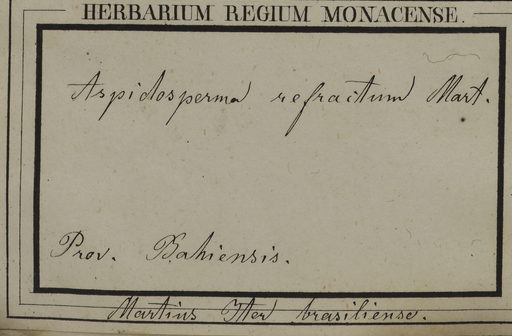 HERBARIUM REGIUM MONACENSE.
Aspidosperma refractum Mart.
Prov. Bahiensis.
Martius Iter brasiliense.